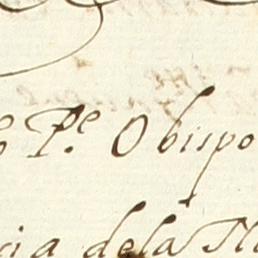 P.e Obispo
cia dela